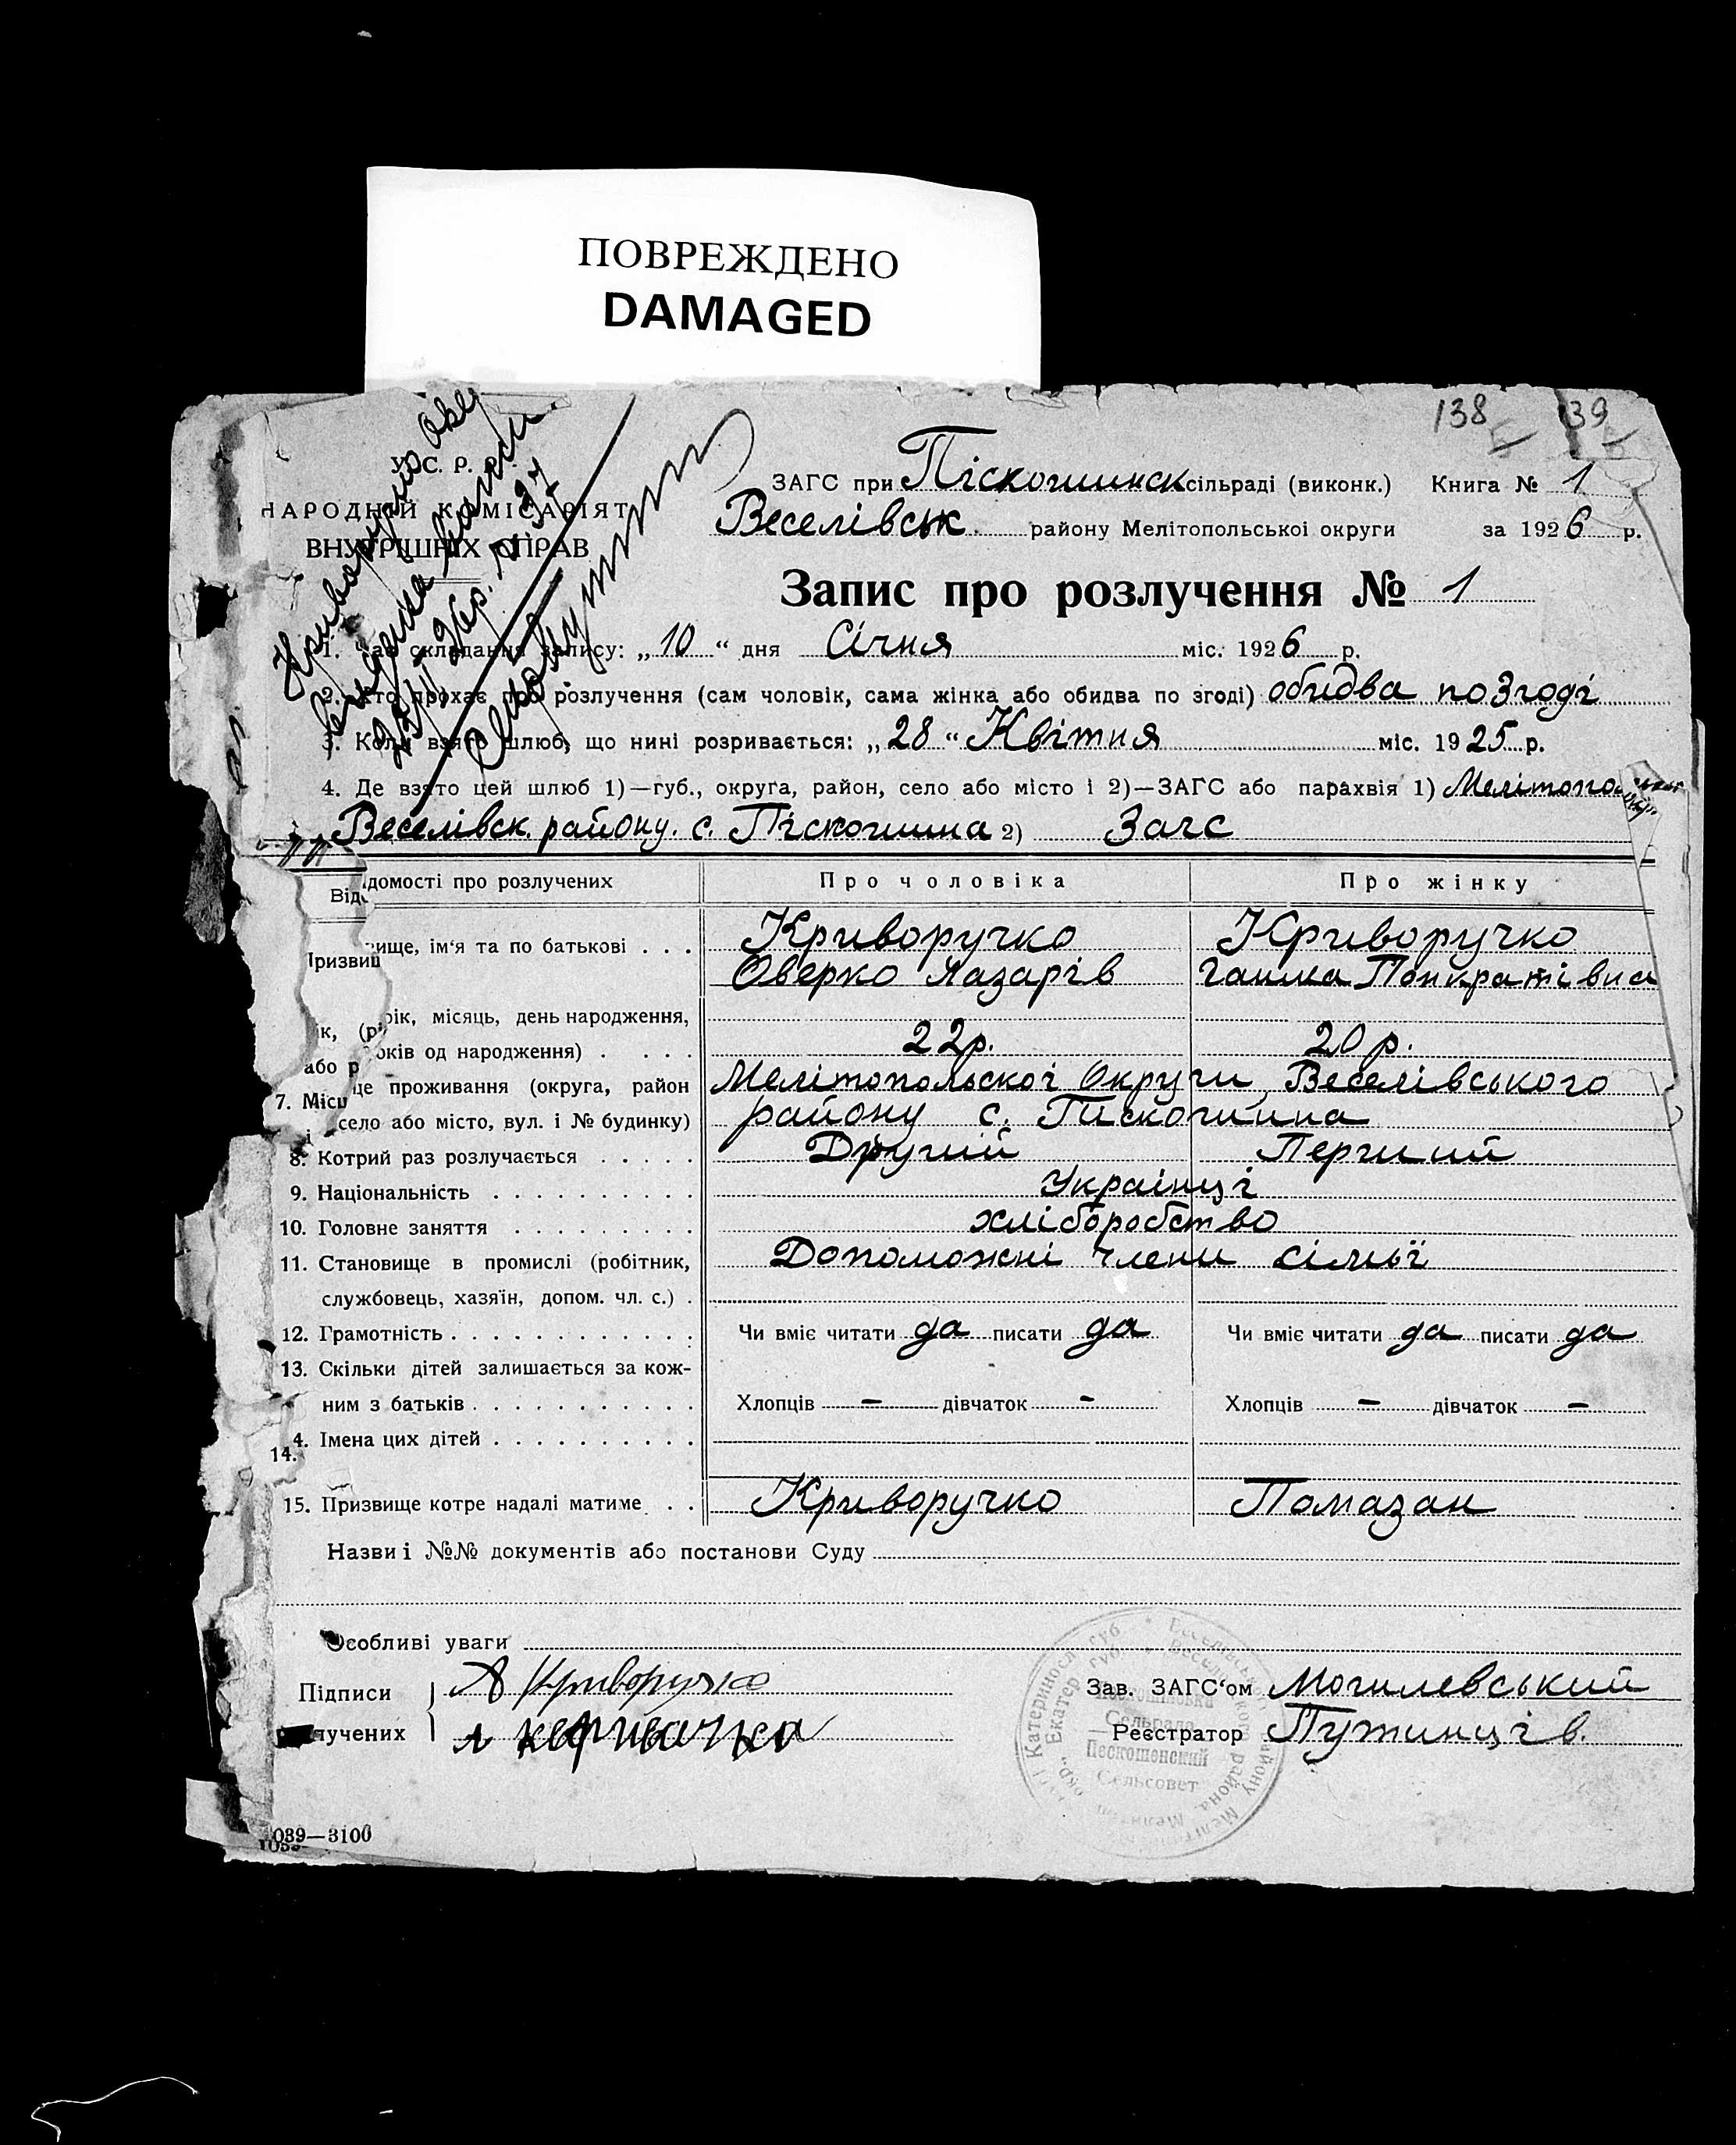 ПОВРЕЖДЕНО
DAMAGED
138 139
У. С. Р. Р.
НАРОДНІЙ КОМІСАРІЯТ
ВНУТРІШНІХ СПРАВ
Криворучко
ЗАГС при Піскошинск сільраді (виконк.) Книга № 1
Веселівськ. району Мелітопольськоі округи за 1926 р.
Запис про розлучення № 1
1. Час складання запису: „10“ дня Січня міс. 1926 р.
2. Хто прохає про розлучення (сам чоловік, сама жінка або обидва по згоді) обидва по згоді
3. Коли взято шлюб, що нині розривається: „28“ Квітня міс. 1925 р.
4. Де взято цей шлюб 1)—губ., округа, район, село або місто і 2)—ЗАГС або парахвія 1)
Веселівськ. району. с. Піскошина 2) Загс
Відомості про розлучених Про чоловіка Про жінку
Призвище, ім‘я та по батькові . . . Криворучко Криворучко
Оверко Лазарів Ганна Понкратівна
рік, місяць, день народження,
або років од народження) . . . . 22р. 20 р.
7. Місце проживання (округа, район Мелітопольскоі Округи, Веселівського
і село або місто, вул. і № будинку) району с. Піскошина
8. Котрий раз розлучається . . . . . Другий Перший
9. Національність . . . . . . . . . . Украінці
10. Головне заняття . . . . . . . . . хліборобство
11. Становище в промислі (робітник, Допоможні члени сімьї
службовець, хазяїн, допом. чл. с.) .
12. Грамотність . . . . . . . . . . . . Чи вміє читати да писати да Чи вміє читати да писати да
13. Скільки дітей залишається за кож-
ним з батьків . . . . . . . . . . . Хлопців – дівчаток – Хлопців – дівчаток –
14. Імена цих дітей . . . . . . . . . .
15. Призвище котре надалі матиме . . Криворучко Помазан
Назви і №№ документів або постанови Суду
Особливі уваги
Підписи А Криворучко Зав. ЗАГС‘ом Могилевський
лучених Реєстратор Путинців.
Сельрада
Пескошенский
Сельсовет
1039—3100